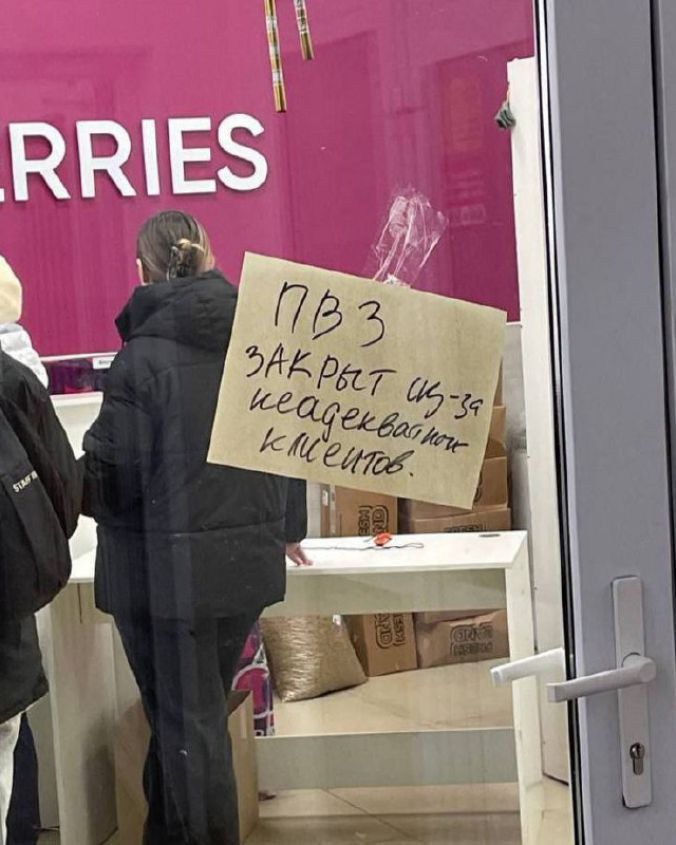 ERRIES
ПВЗ
ЗАКРЫТ из-за
неадекватных
клиентов.
FRESH